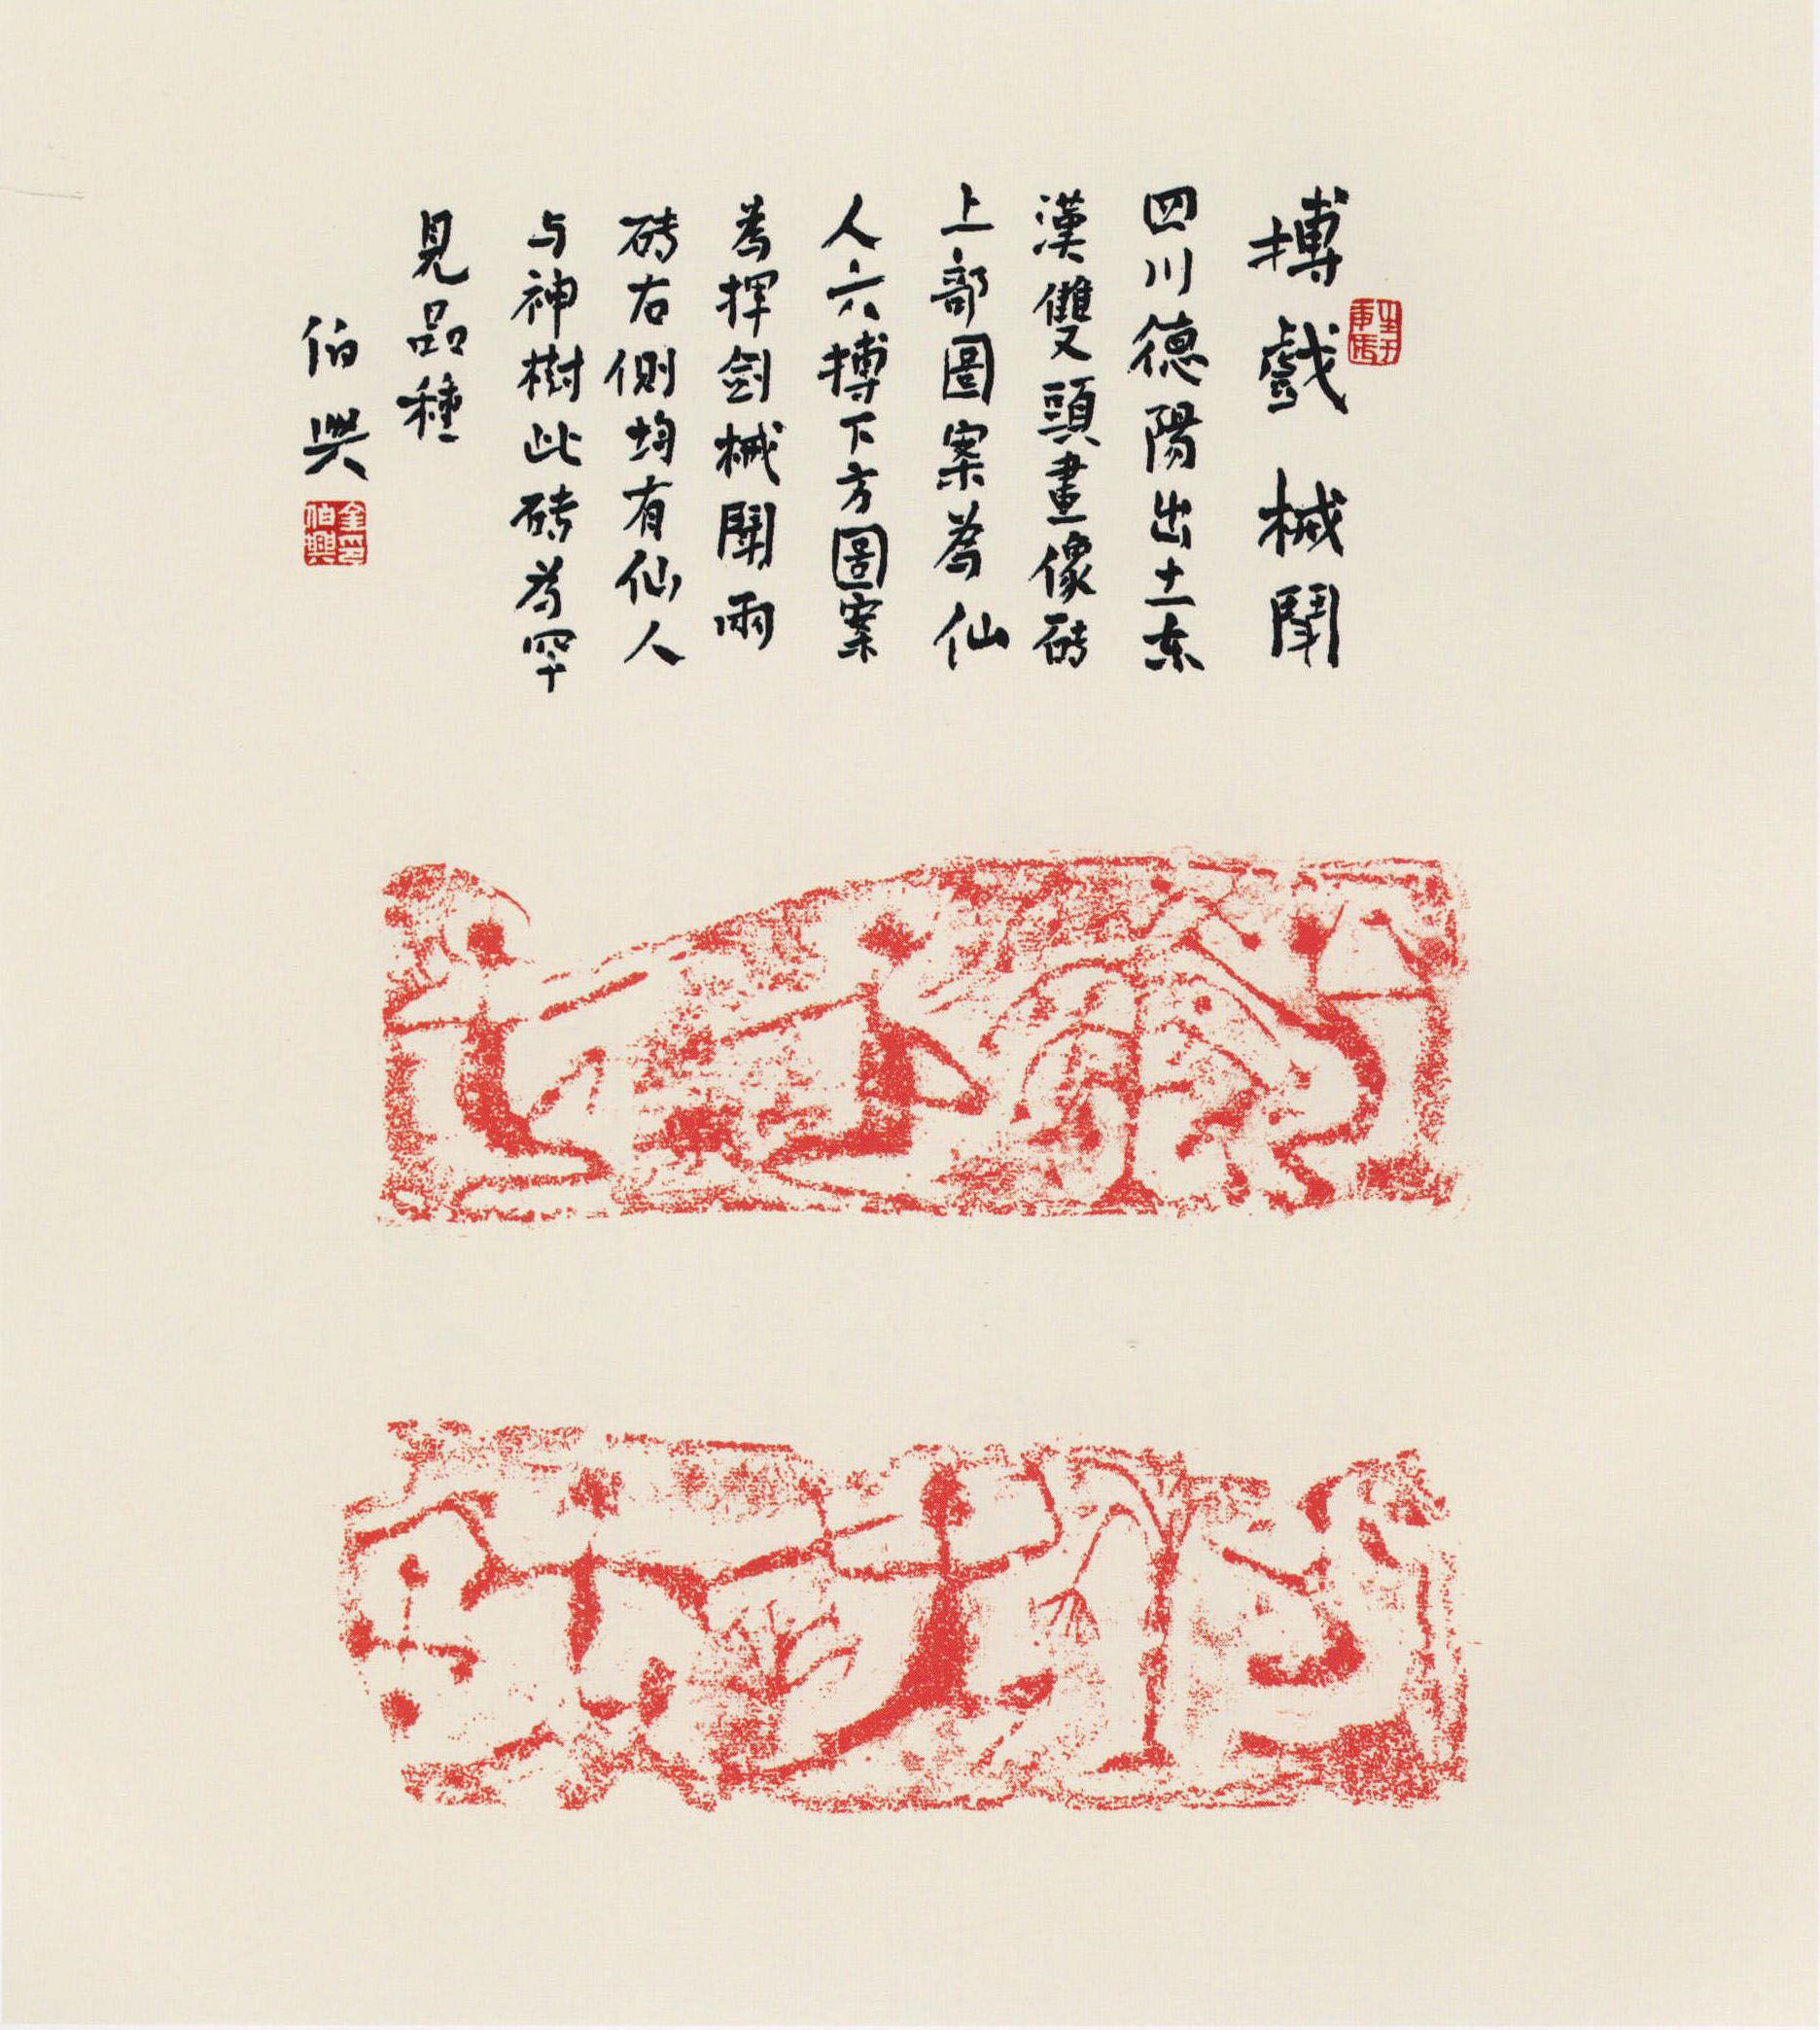 搏戲 械鬥
四川德陽出土东
漢雙頭畫像砖
上部圖案為仙
人六搏下方圖案
為揮劍械鬥兩
砖右側均有仙人
与神樹此砖为罕
見品種
伯興
金印伯興